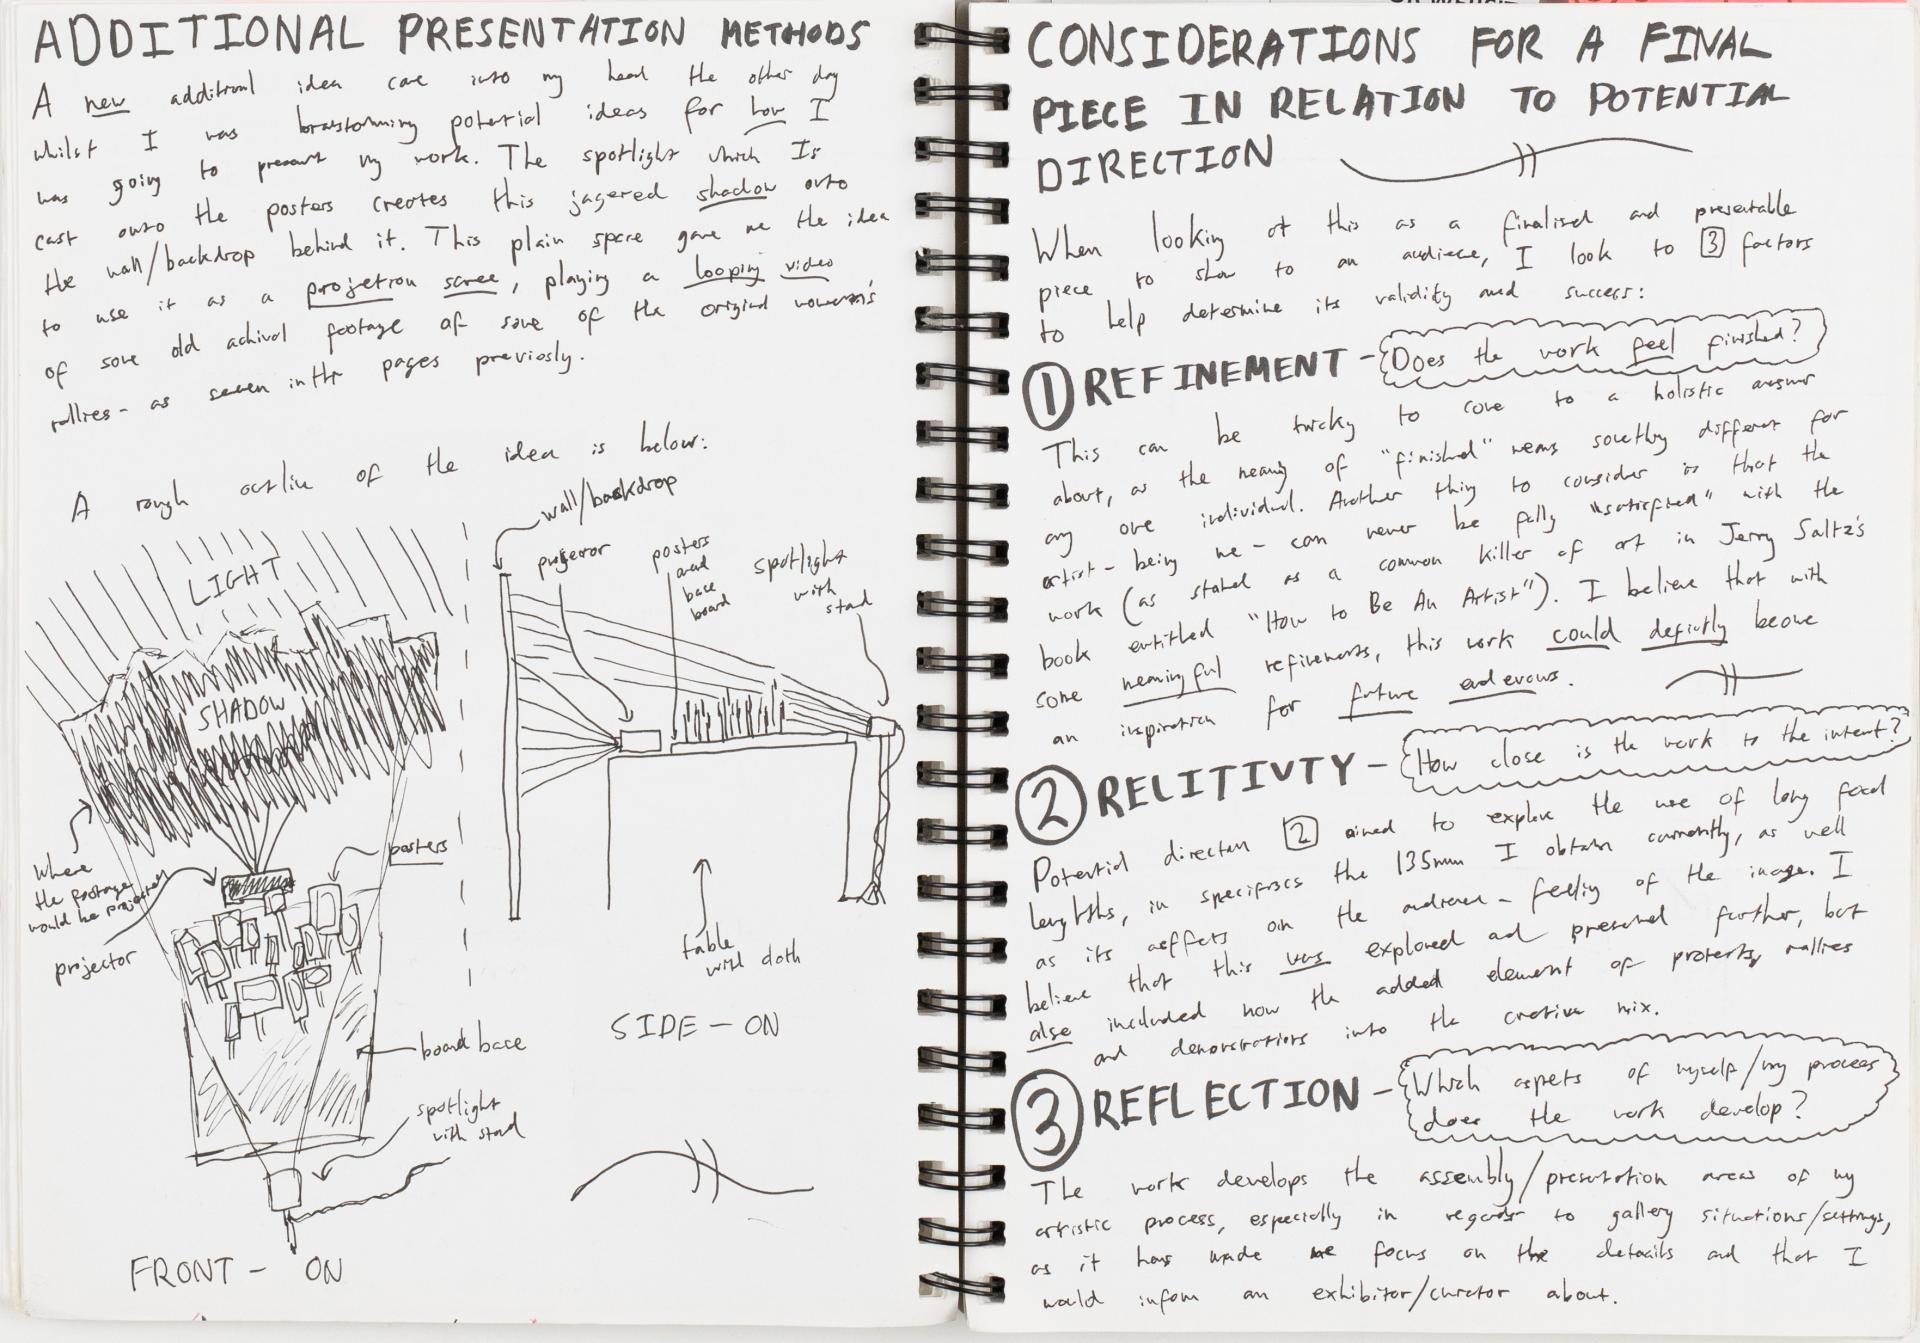 ADDITIONAL PRESENTATION METHODS
A new additional idea came into my head the other day
whilst I was brainstorming potential ideas for how I
was going to present my work. The spotlight which Is
cast onto the posters creates this jagered shadow onto
the wall/backdrop behind it. This plain space gave me the idea
to use it as a projetion scree, playing a looping video
of some old achival footage of some of the original women's
rallies - as seen in the pages previosly.
A rough outline of the idea is below:
LIGHT
SHADOW
Where
the footage
would be projected
projector
posters
board base
spotlight
with stand
FRONT - ON
wall/backdrop
projector
posters
and
base
board
spotlight
with
stand
table
with cloth
SIDE - ON
CONSIDERATIONS FOR A FINAL
PIECE IN RELATION TO POTENTIAL
DIRECTION
When looking at this as a finalised and presentable
piece to show to an audience, I look to 3 factors
to help determine its validity and success:
1 REFINEMENT - Does the work feel finished?
This can be tricky to come to a holistic answer
about, as the meaning of "finished" means something different for
any one individual. Another thing to consider is that the
artist - being me - can never be fully "satisfied" with the
work (as stated as a common killer of art in Jerry Saltz's
book entitled "How to Be An Artist"). I believe that with
some meaningful refinements, this work could definitly become
an inspiration for future endevous.
2 RELITIVTY - How close is the work to the intent?
Potential direction 2 aimed to explore the use of long focal
lengths, in specifics the 135mm I obtain currently, as well
as its aeffets on the audience - feeling of the image. I
believe that this was explored and presened further, but
also included now the added element of protests, rallies
and demonstrations into the creative mix.
3 REFLECTION - Which aspets of myself/my process
does the work develop?
The work develops the assembly/presentation areas of my
artistic process, especially in regards to gallery situations/settings,
as it has made me focus on the detaails and that I
would infom an exhibitor/curator about.